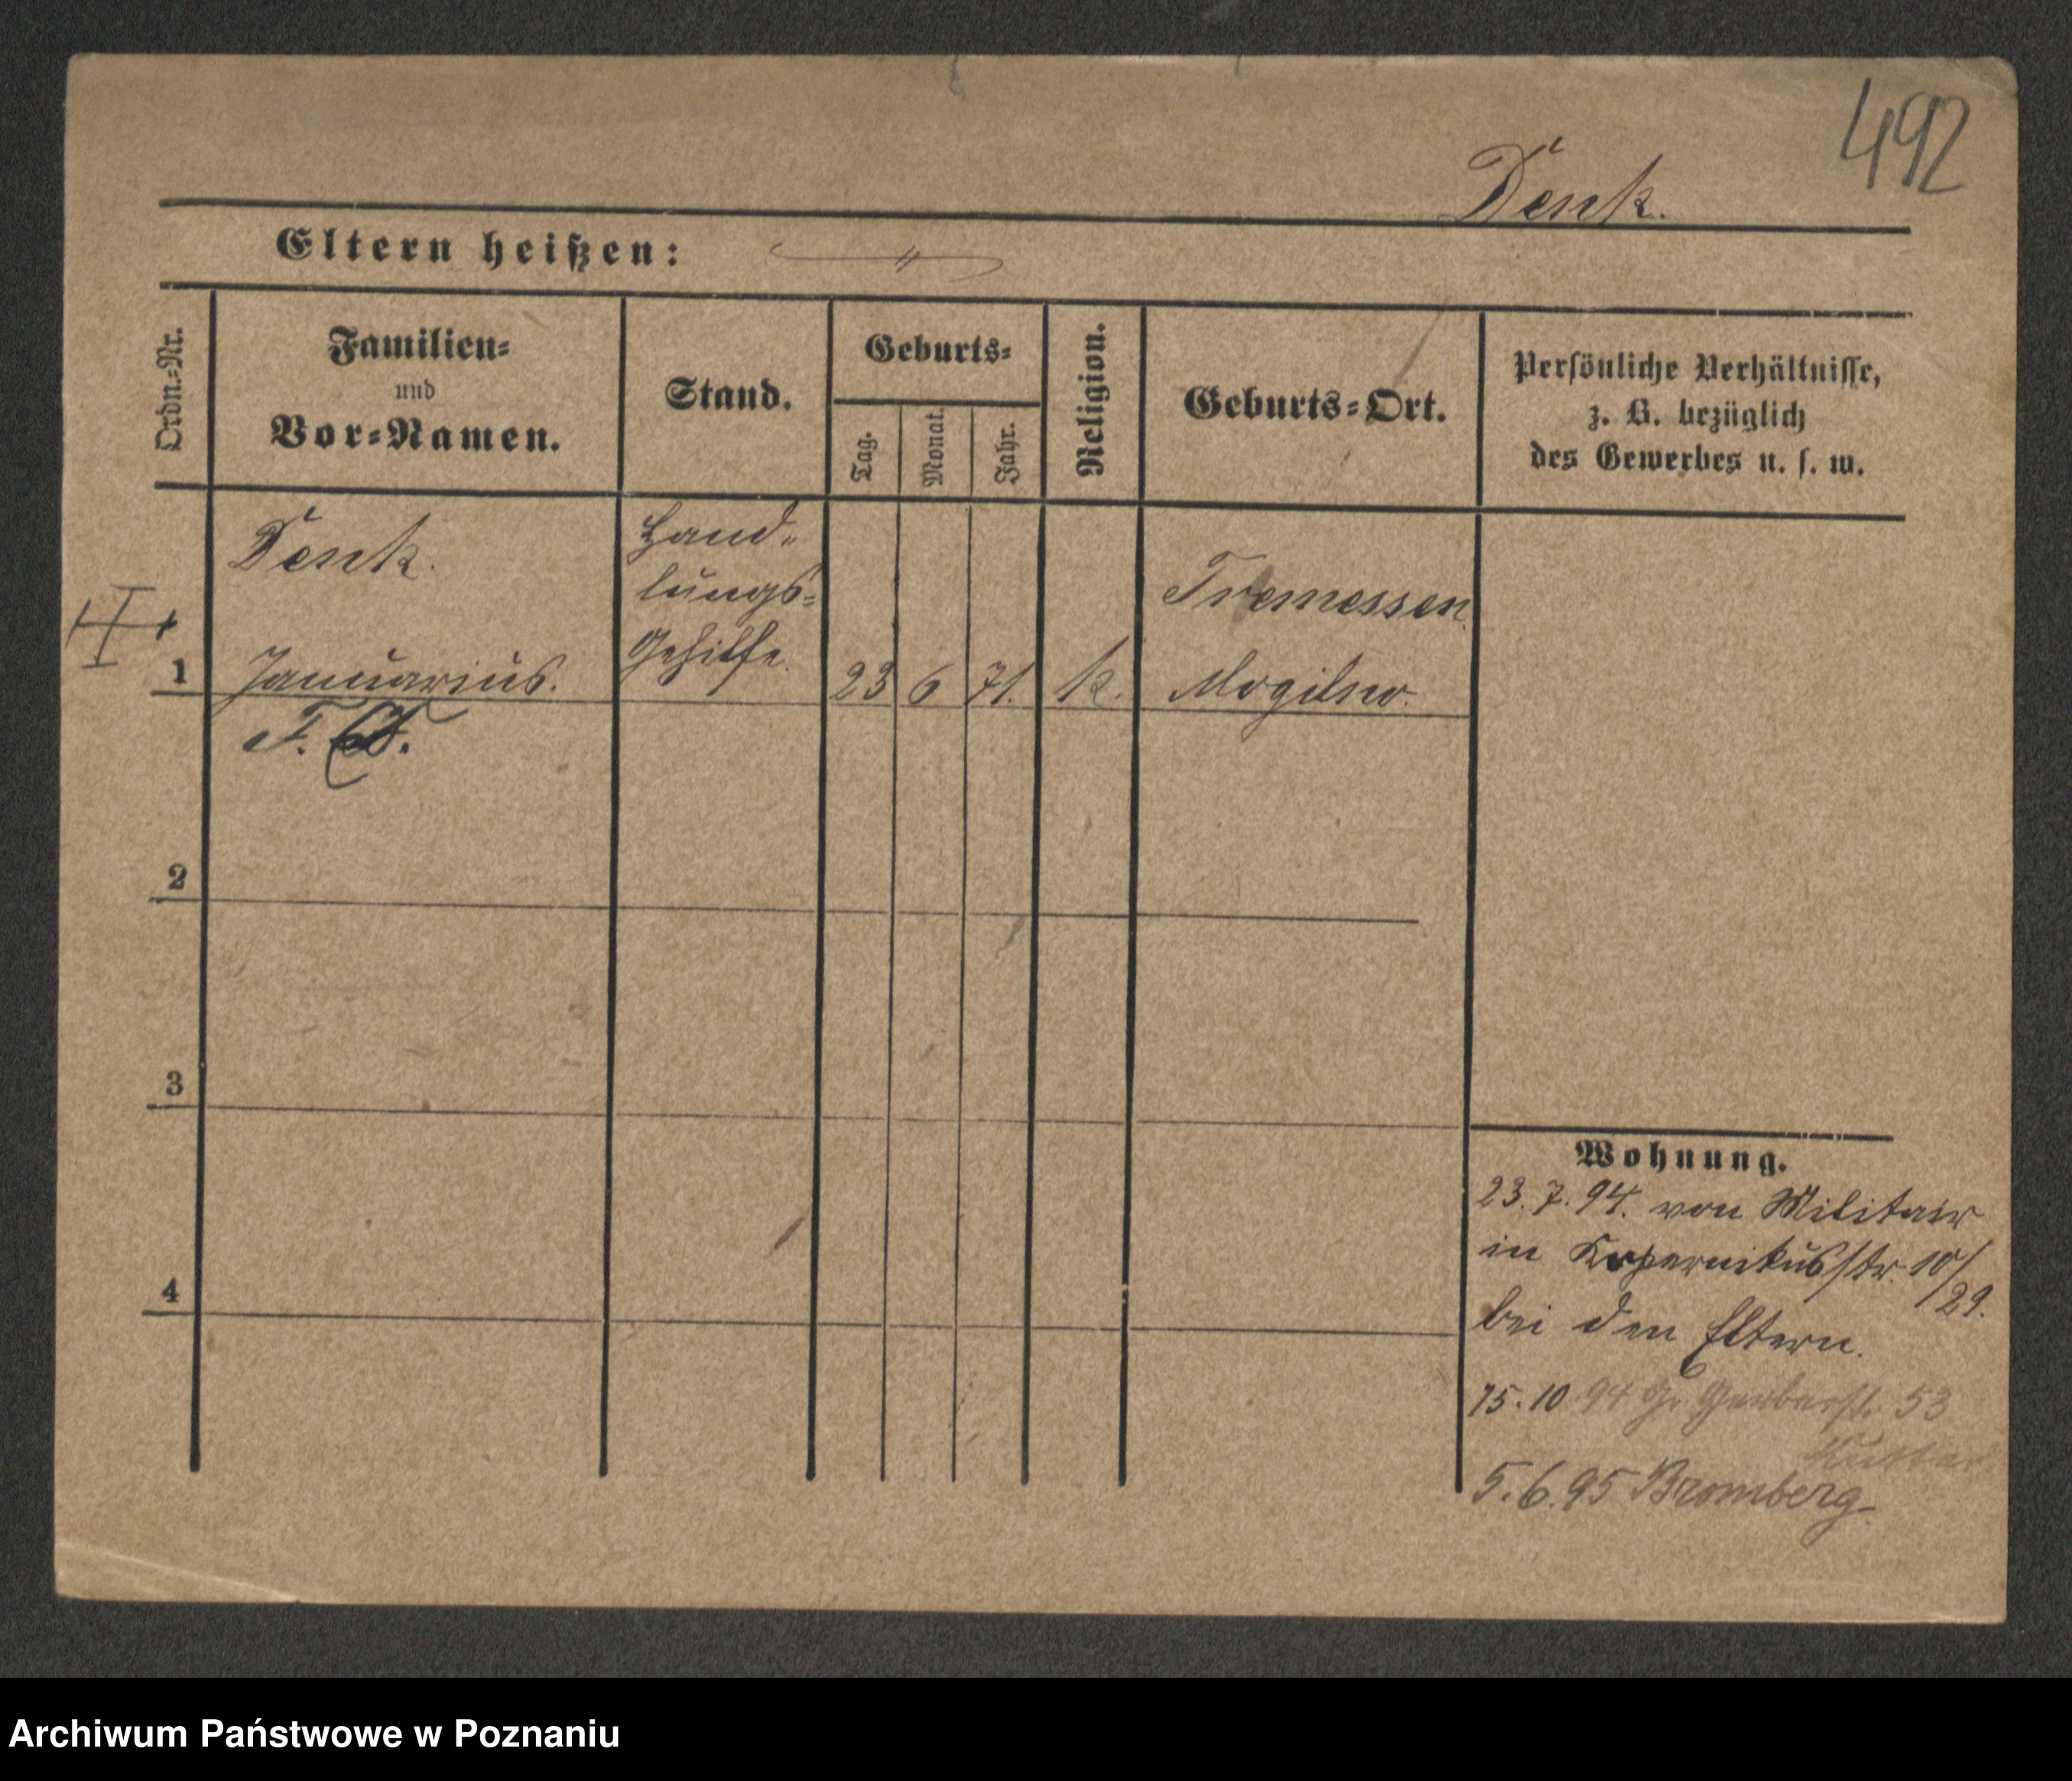 492
Denk.
Eltern heißen: "
Ordn.-Nr.
Familien-
und
Vor-Namen.
Stand.
Geburts-
Tag.
Monat.
Jahr.
Religion.
Geburts-Ort.
Persönliche Verhältnisse,
z. B. bezüglich
des Gewerbes u. s. w.
Denk.
Hand-
lungs-
Gehilfe.
Tremessen
1 Januarius. 23 6 71. k. Mogilno.
2
3
4
Wohnung.
23.7.94. von Militair
in Kopernikusstr. 10/
/29.
bei den Eltern.
15.10 94 Gr Gerberstr. 53
Mutter
5.6.95 Bromberg
Archiwum Państwowe w Poznaniu